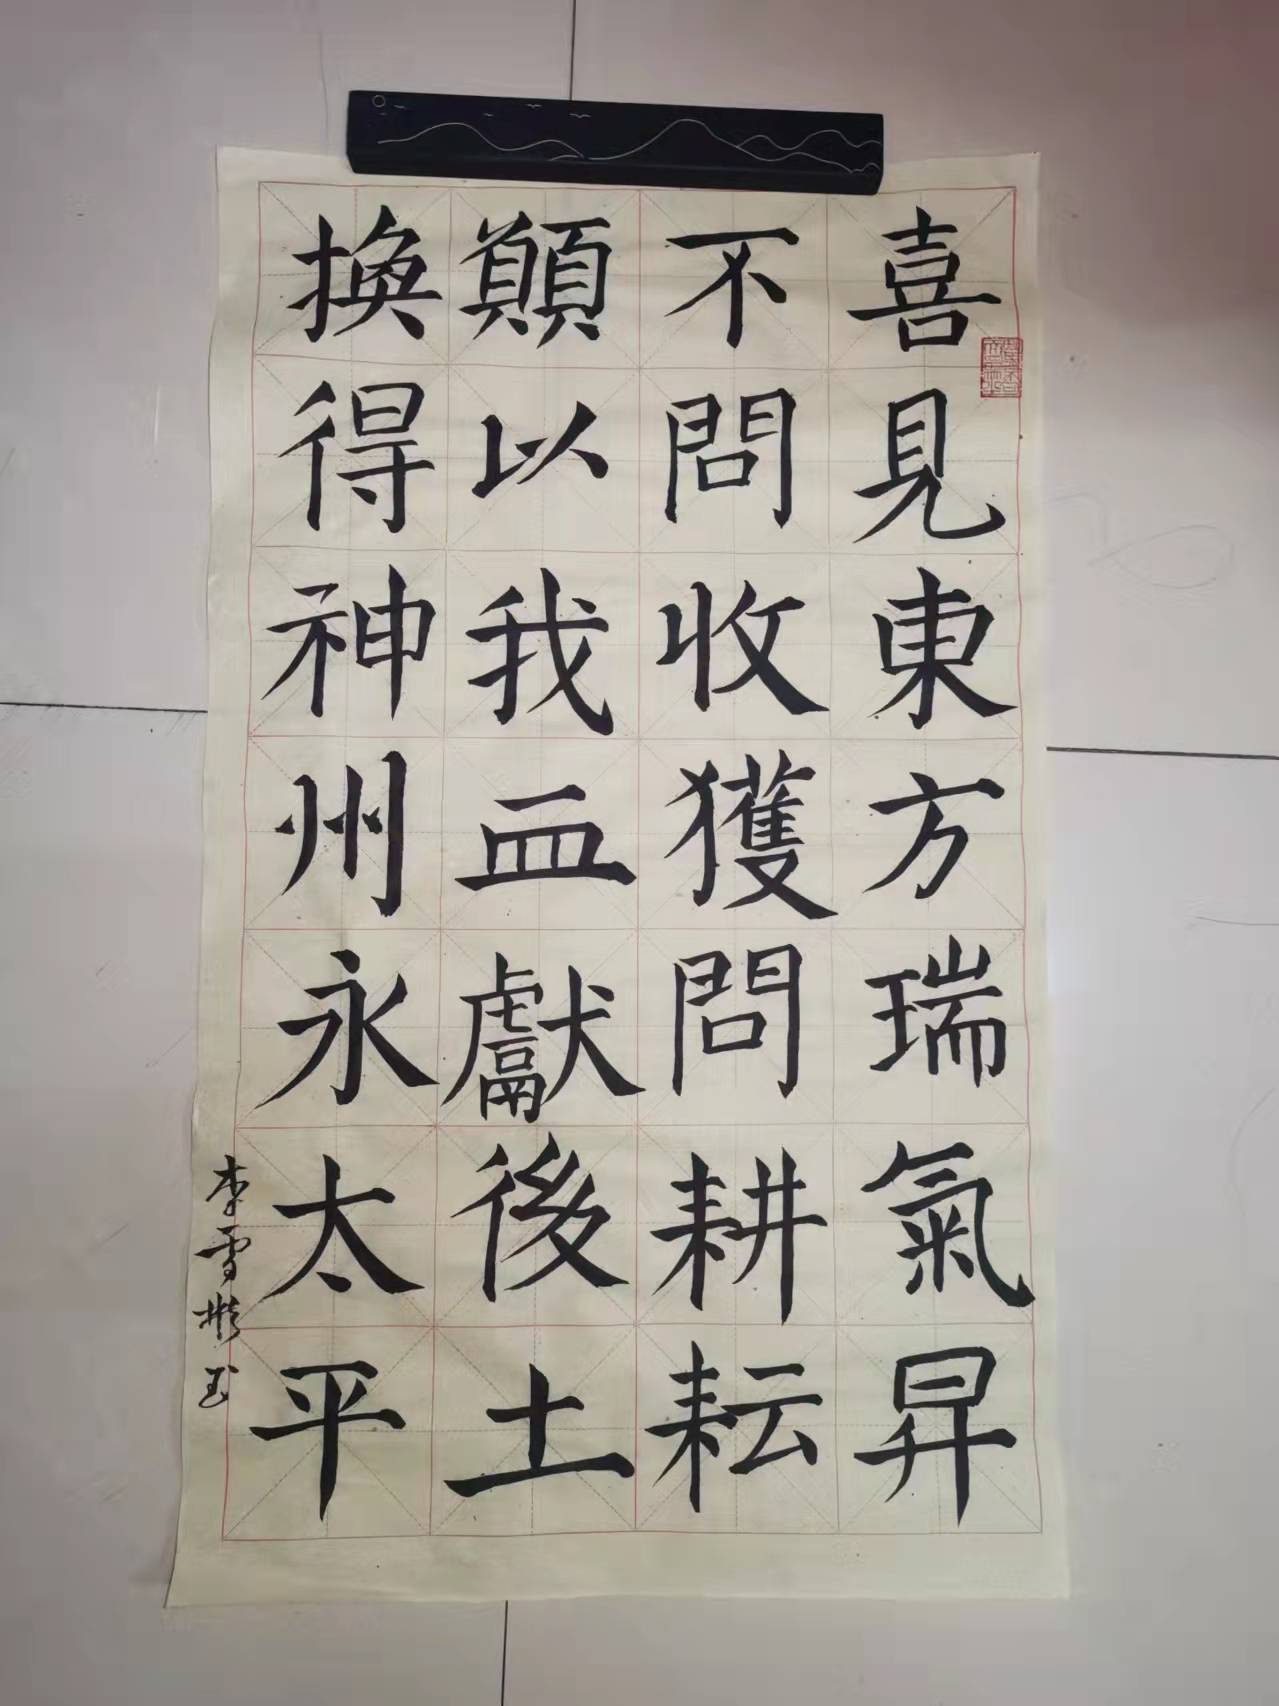 喜見東方瑞氣昇
不問收獲問耕耘
願以我血獻後土
換得神州永太平
李雪彬书